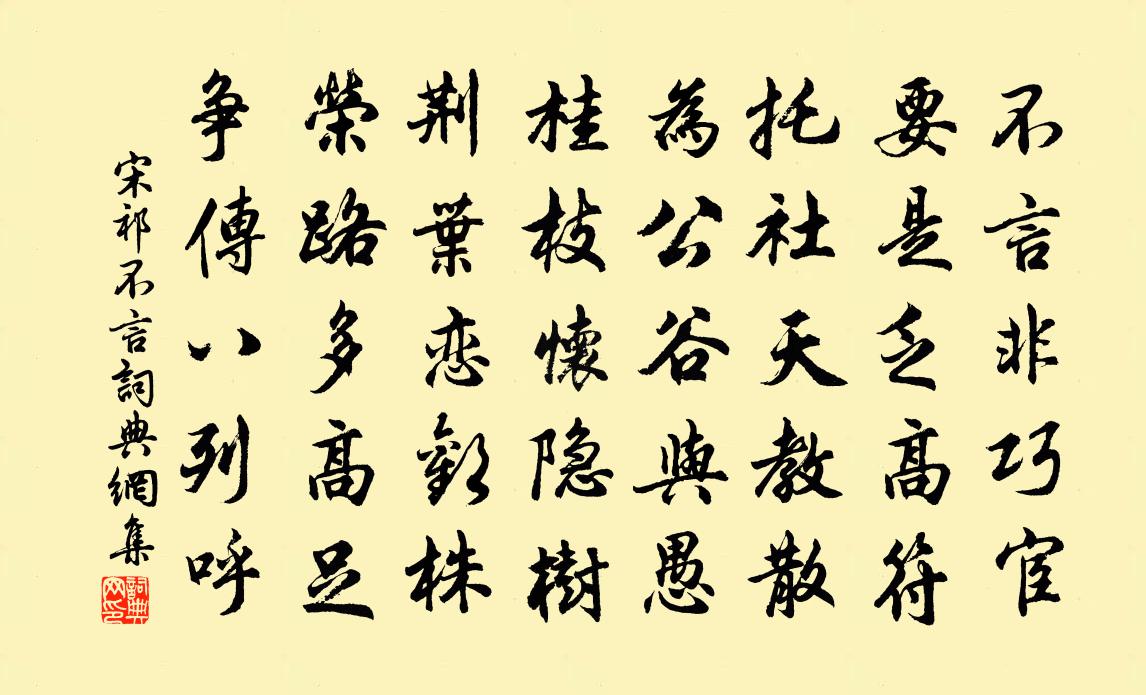 不言非巧宦
要是乏高符
托社天教散
為公谷與愚
桂枝懷隐樹
荆葉恋歡株
榮路多高足
争傳八列呼
宋祁不言詞典網集
詞典網印